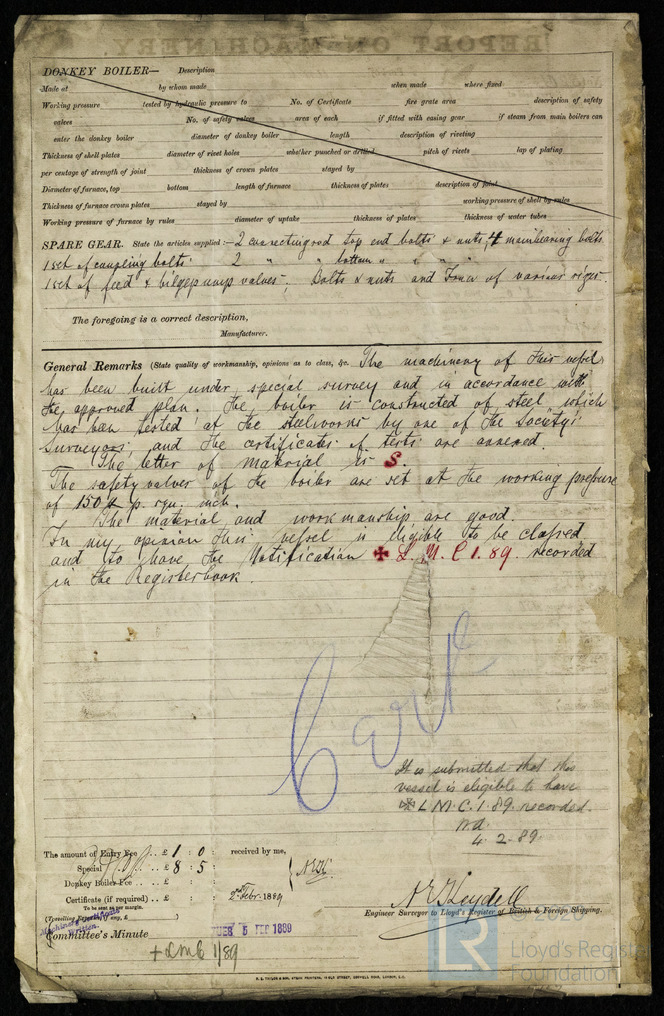 REPORT ON MACHINERY.
DONKEY BOILER— Description
Made at by whom made when made where fixed
Working pressure tested by hydraulic pressure to No. of Certificate fire grate area description of safety
valves No. of safety valves area of each if fitted with easing gear if steam from main boilers can
enter the donkey boiler diameter of donkey boiler length description of riveting
Thickness of shell plates diameter of rivet holes whether punched or drilled pitch of rivets lap of plating
per centage of strength of joint thickness of crown plates stayed by
Diameter of furnace, top bottom length of furnace thickness of plates description of joint
Thickness of furnace crown plates stayed by working pressure of shell by rules
Working pressure of furnace by rules diameter of uptake thickness of plates thickness of water tubes
SPARE GEAR. State the articles supplied:— 2 connecting rod top end bolts & nuts, 4 main bearing bolts
1 set of coupling bolts 2 " " bottom " " " "
1 set of feed & bilge pump valves, Bolts & nuts and Iron of various sizes.
The foregoing is a correct description,
Manufacturer.
General Remarks (State quality of workmanship, opinions as to class, &c. The machinery of this vessel
has been built under special survey and in accordance with
the approved plan. The boiler is constructed of steel which
has been tested at the steelworks by one of the Society's
Surveyors, and the certificates of tests are annexed.
The letter of material is S.
The safety valves of the boiler are set at the working pressure
of 150 lb p. squ. inch.
The material and workmanship are good.
In my opinion this vessel is eligible to be classed
and to have the Notification ✠ L.M.C 1.89. recorded
in the Registerbook.
Cert
It is submitted that this
vessel is eligible to have
✠ L.M.C. 1.89 recorded.
4.2.89
The amount of Entry Fee .. £ 1 : 0 : received by me,
Special .. £ 8 : 5 :
Donkey Boiler Fee .. £ : :
Certificate (if required) .. £ : : 2nd Febr. 1889
To be sent as per margin.
(Travelling Expenses, if any, £ )
A E Keydell
Engineer Surveyor to Lloyd's Register of British & Foreign Shipping.
Machinery Certificate
Written.
Committee's Minute TUES 5 FEB 1889
+ LMC 1/89
© 2020
LR
Lloyd's Register
Foundation